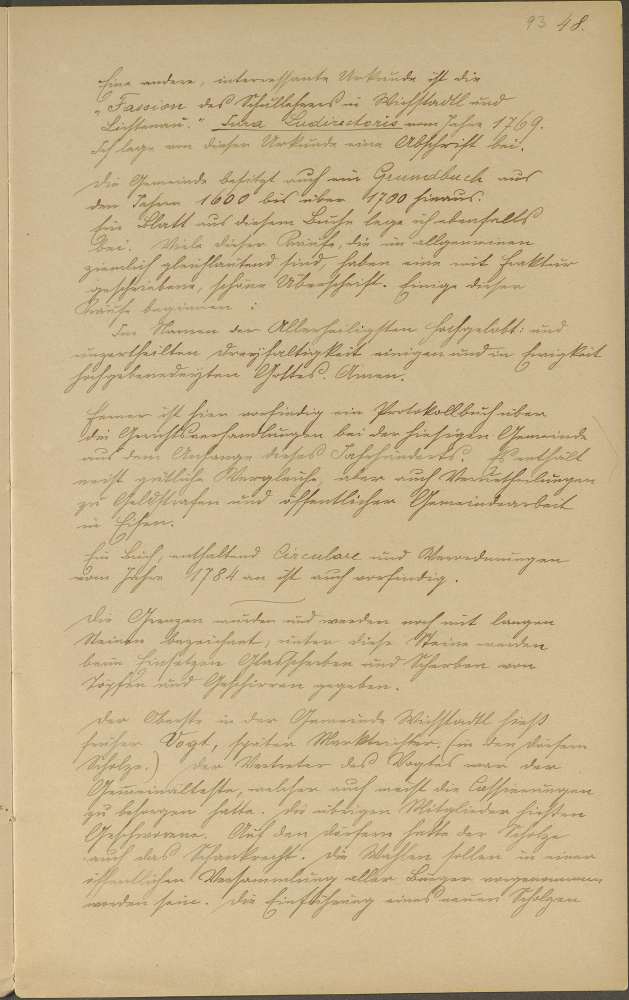 93 48.
Eine andere, interessante Urkunde ist die
„Fassion des Schullehrers in Wichstadtl und
Lichtenau." Jura Ludirectoris vom Jahre 1769.
Ich lege von dieser Urkunde eine Abschrift bei.
Die Gemeinde besitzt auch ein Grundbuch aus
den Jahren 1600 bis über 1700 hinaus.
Ein Blatt aus diesem Buche lege ich ebenfalls
bei. Viele dieser Käufe, die im allgemeinen
ziemlich gleichlautend sind, haben eine mit Fraktur
geschriebene, schöne Überschrift. Einige dieser
Käufe beginnen :
Im Namen der Allerheiligsten hochgelobt: und
unzertheilten Dreyfaltigkeit einigen und in Ewigkeit
hochgebenedeyten Gottes. Amen.
Ferner ist hier vorfindig ein Protokollbuch über
die Gerichtsverhandlungen bei der hiesigen Gemeinde
aus dem Anfange dieses Jahrhunderts. Es enthält
meist gütliche Vergleiche, aber auch Verurtheilungen
zu Geldstrafen und öffentlicher Gemeindearbeit
in Eisen.
Ein Buch, enthaltend Circulare und Verordnungen
vom Jahre 1784 an ist auch vorfindig.
Die Grenzen wurden und werden noch mit langen
Steinen bezeichnet, unter diese Steine werden
beim Einsetzen Glasscherben und Scherben von
Töpfen und Geschirren gegeben.
Der Oberste in der Gemeinde Wichstadtl hieß
früher Vogt, später Marktrichter. (in den Dörfern
Scholze.) Der Vertreter des Vogtes war der
Gemeinälteste, welcher auch meist die Cassierungen
zu besorgen hatte. Die übrigen Mitglieder hießen
Geschworene. Auf den Dörfern hatte der Scholze
auch das Schankrecht. Die Wahlen sollen in einer
öffentlichen Versammlung aller Bürger vorgenommen
worden sein. Die Einführung eines neuen Scholzen